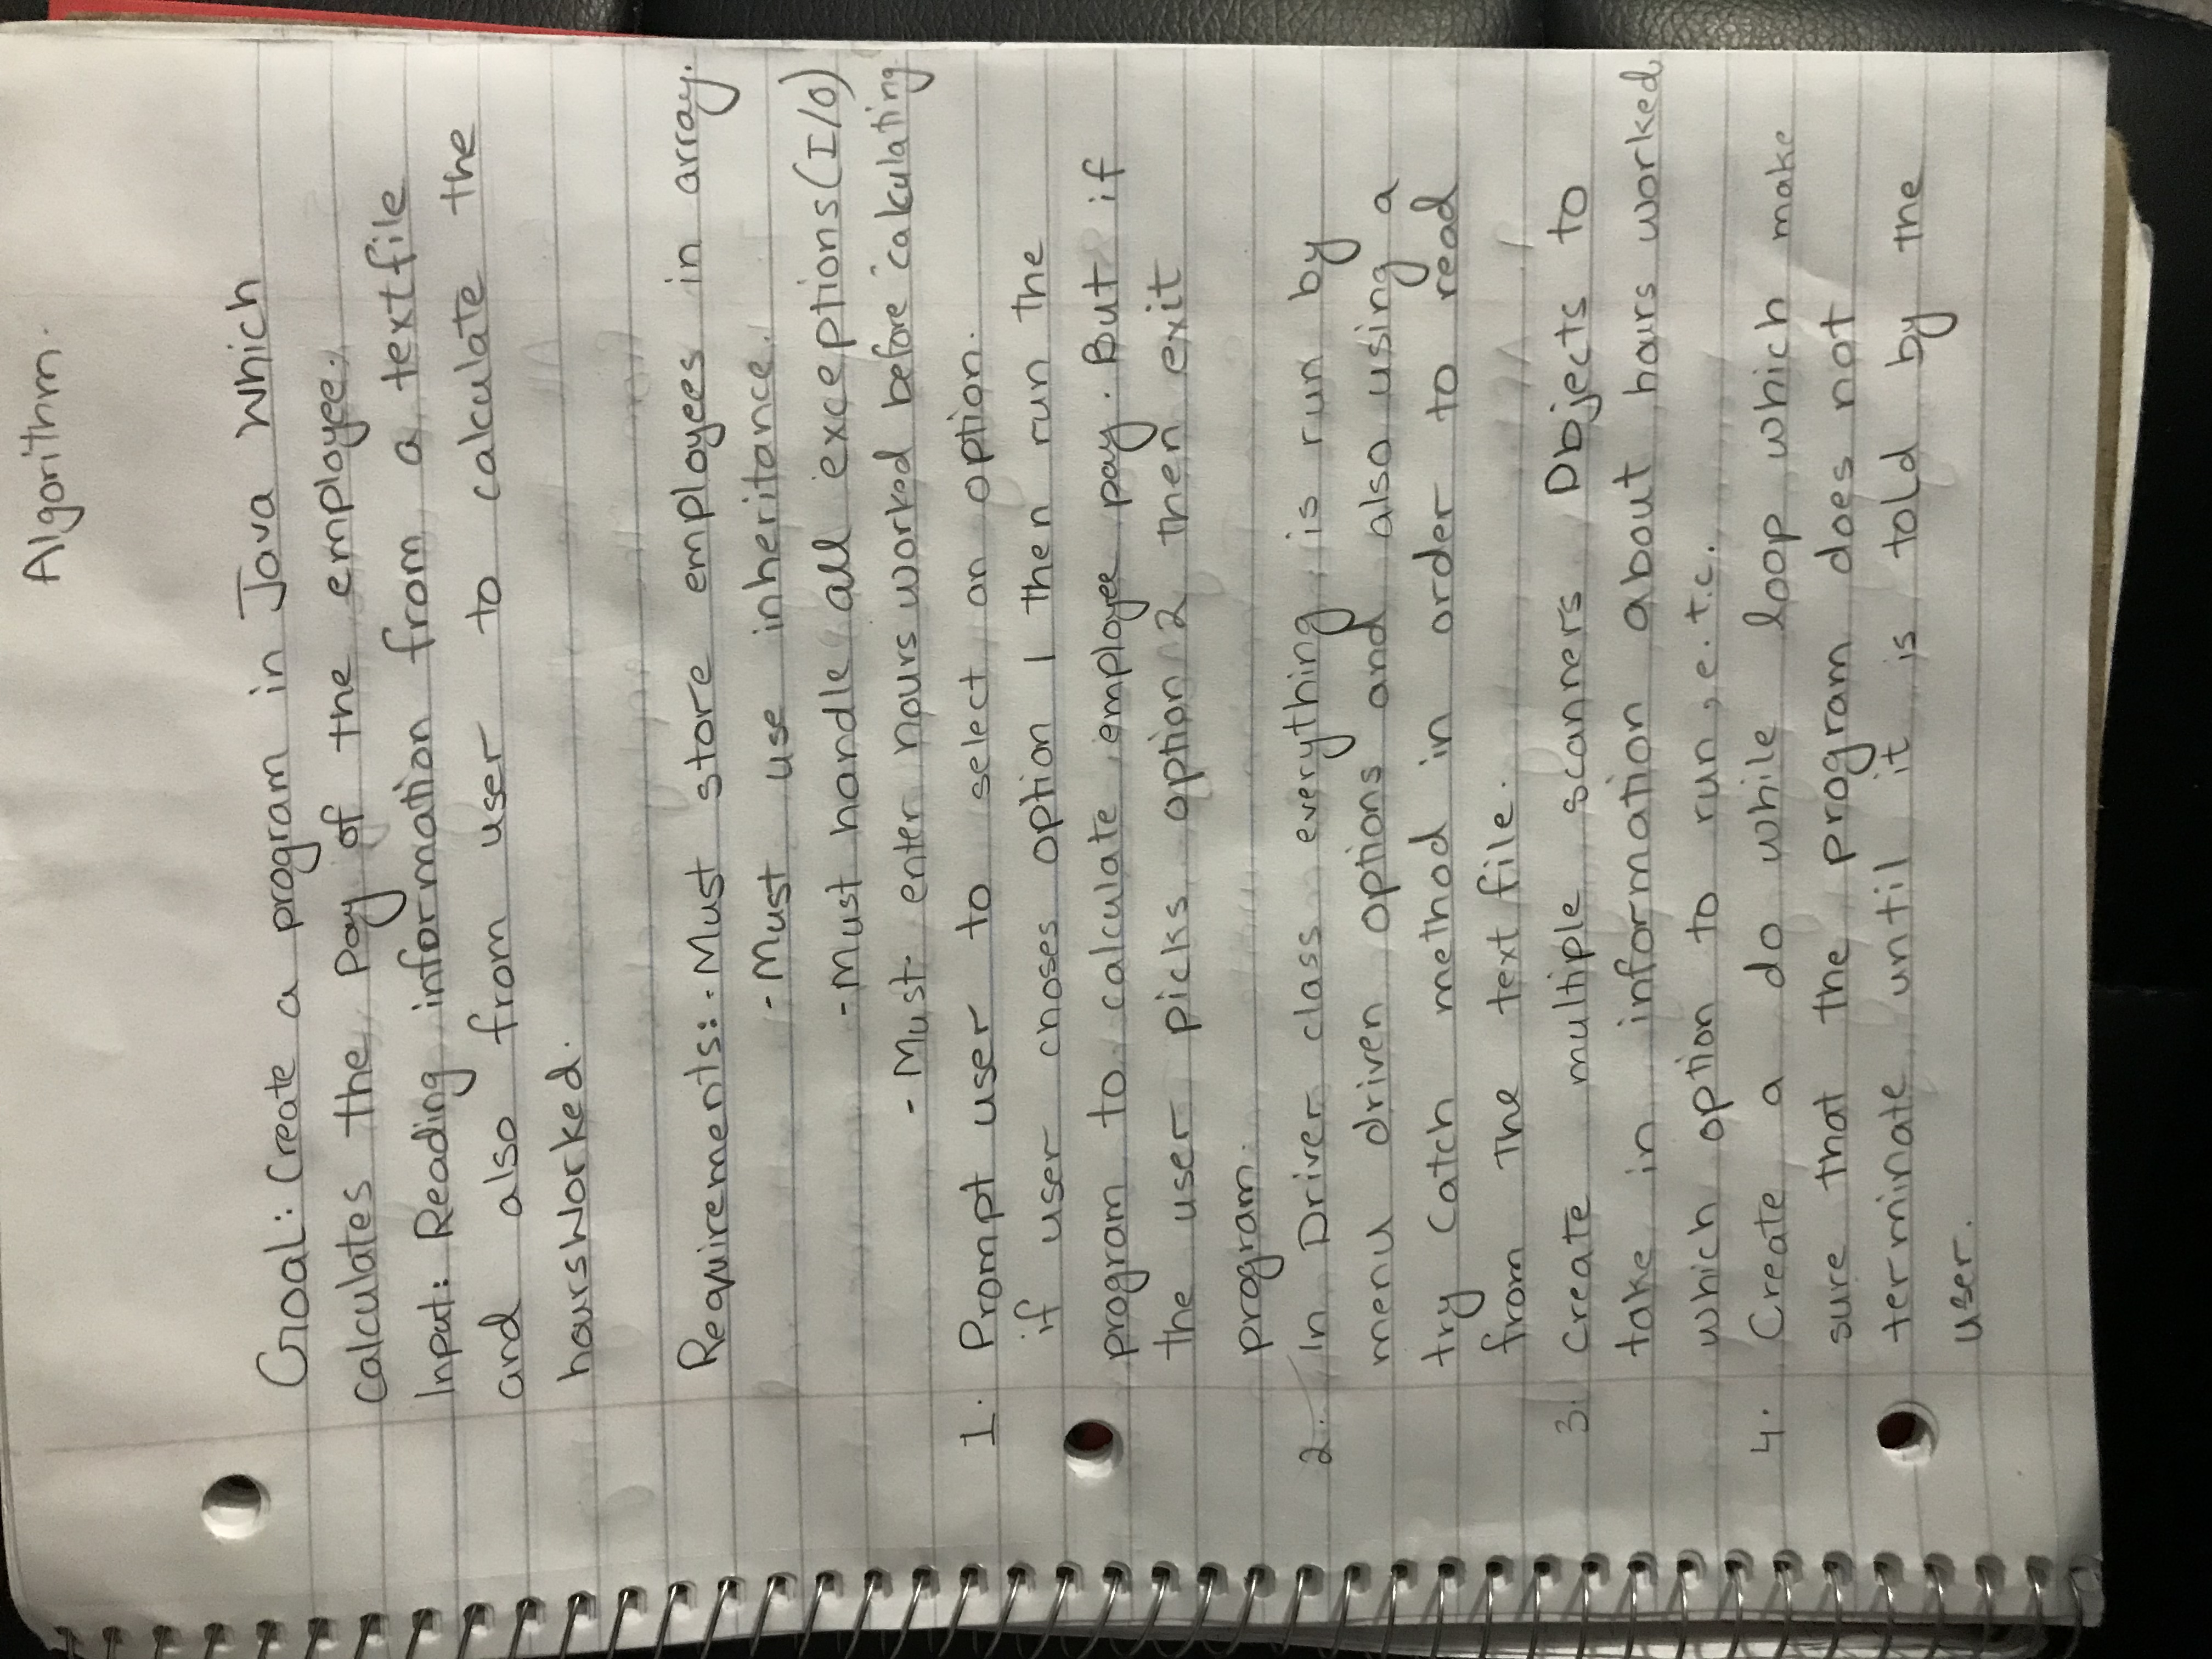 Algorithm.
Goal: Create a program in Java which
calculates the pay of the employee.
Input: Reading information from a textfile
and also from user to calculate the
hoursWorked.
Requirements: - Must store employees in array.
- Must use inheritance.
- Must handle all exceptions (I/O)
- Must enter hours worked before calculating
1. Prompt user to select an option.
if user choses option 1 then run the
program to calculate employee pay. But if
the user picks option 2 then exit
program.
2. In Driver class everything is run by
menu driven options and also using a
try catch method in order to read
from the text file.
3. Create multiple scanners Objects to
take in information about hours worked,
which option to run, e.t.c.
4. Create a do while loop which make
sure that the program does not
terminate until it is told by the
user.